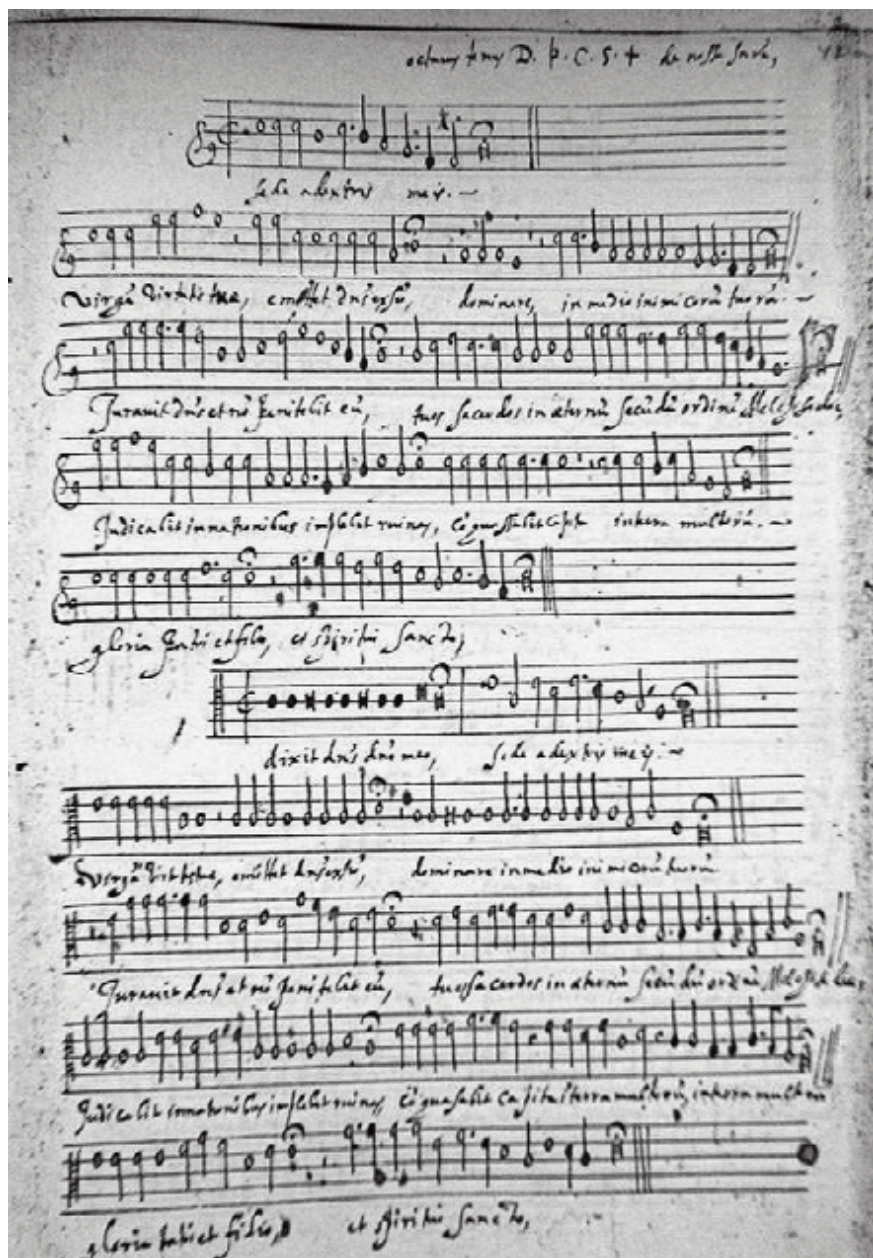 octavus tonus D. p. C. S. + de
sede a dextris meis.
Virgã Virtutis tuæ, emittet dn̄s ex siõ, dominare, in medio inimicorũ tuorũ.
Juravit dn̄s et nõ penitebit eũ, tu es sacerdos in æternũ secũdũ ordinẽ Melchisedec,
Judicabit in nationibus implebit ruinas, cõquassabit capita in terra multorũ.
gloria patri et filio, et spiritui sancto,
dixit dn̄s dn̄o meo, sede a dextris meis.
Virgã Virtutis tuæ, emittet dn̄s ex siõ, dominare in medio inimicorũ tuorũ
Juravit dn̄s et nõ penitebit eũ, tu es sacerdos in æternũ secũdũ ordinẽ Melchisedec,
Judicabit in nationibus implebit ruinas, cõquasabit capita terra multorũ, in terra multorũ
gloria patri et filio, et spiritui sancto,